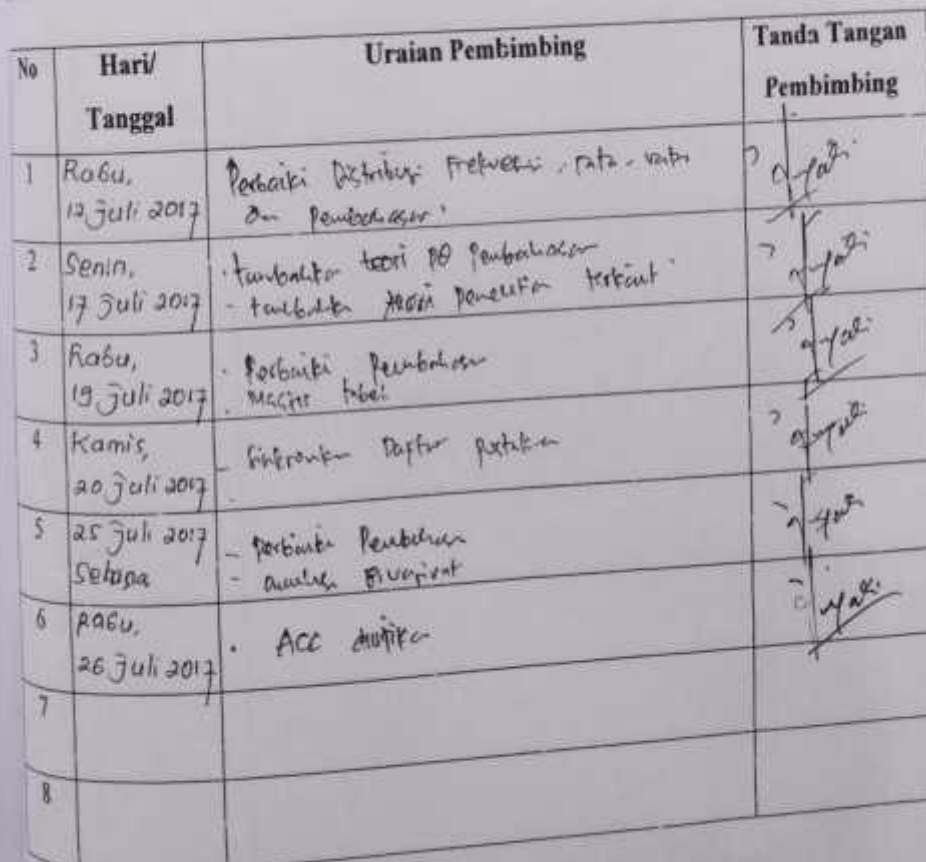 No
Hari/
Tanggal
Uraian Pembimbing
Tanda Tangan
Pembimbing
1
Rabu,
12 Juli 2017
Perbaiki Distribusi Frekuensi, rata-rata
dan Pembahasan
2
Senin,
17 Juli 2017
- tambahkan teori pd Pembahasan
- tambahkan penelitian terkait
3
Rabu,
19 Juli 2017
- Perbaiki Pembahasan
- Master tabel
4
Kamis,
20 Juli 2017
- Sinkronkan Daftar pustaka
5
25 Juli 2017
Selasa
- Perbaiki Pembahasan
- analisa Bivariat
6
Rabu,
26 Juli 2017
- ACC
7
8